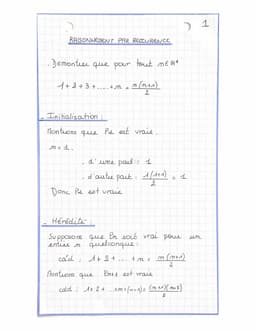 1
RAISONNEMENT PAR RECURRENCE
. Démontrer que pour tout n∈ℕ*
1+2+3+.....+n = n(n+1)/2
. Initialisation :
Montrons que P1 est vraie.
n=1.
. d'une part : 1
. d'autre part : 1(1+1)/2 = 1
Donc P1 est vraie
. Hérédité :
Supposons que Pn soit vrai pour un
entier n quelconque :
càd : 1+2+...+n = n(n+1)/2
Montrons que Pn+1 est vraie
càd : 1+2+...+n+(n+1) = (n+1)(n+2)/2